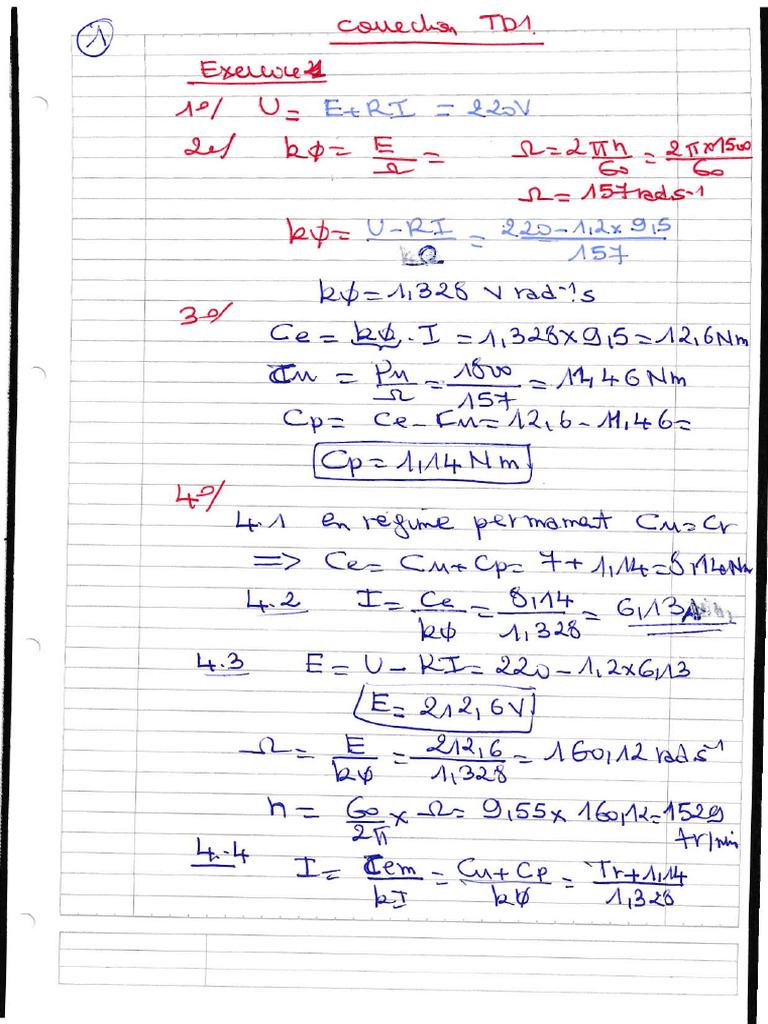 1
correction TD1.
Exercice 1
1°/ U = E+RI = 220V
2°/ kφ = E/Ω = Ω = 2πn/60 = 2π×1500/60
Ω = 157 rad.s-1
kφ = U-RI/Ω = 220-1,2×9,5/157
kφ = 1,328 V rad-1.s
3°/
Ce = kφ.I = 1,328×9,5 = 12,6 Nm
Cu = Pu/Ω = 1800/157 = 11,46 Nm
Cp = Ce - Cu = 12,6 - 11,46 =
Cp = 1,14 Nm
4°/
4.1 en régime permamant Cu = Cr
=> Ce = Cu + Cp = 7 + 1,14 = 8,14 Nm
4.2 I = Ce/kφ = 8,14/1,328 = 6,13A
4.3 E = U - RI = 220 - 1,2×6,13
E = 212,6V
Ω = E/kφ = 212,6/1,328 = 160,12 rad.s-1
n = 60/2π × Ω = 9,55 × 160,12 = 1529
tr/min
4.4 I = Cem/kI = Cu+Cp/kφ = Tr+1,14/1,328